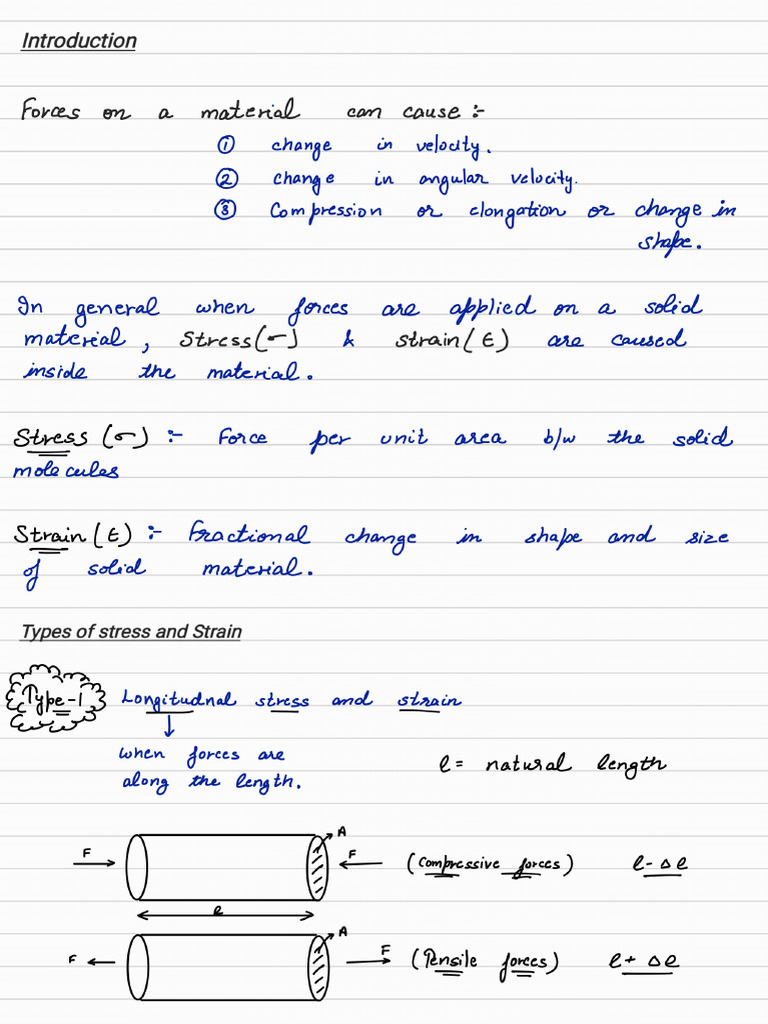 Introduction
Forces on a material can cause :-
① change in velocity.
② change in angular velocity.
③ Compression or elongation or change in
shape.
In general when forces are applied on a solid
material, Stress(σ) & strain(ε) are caused
inside the material.
Stress (σ) :- Force per unit area b/w the solid
molecules
Strain(ε) :- Fractional change in shape and size
of solid material.
Types of stress and Strain
Type-1 Longitudnal stress and strain
↓
when forces are
along the length.
l = natural length
F → A F ← (compressive forces) l - Δl
l
F ← A F → (Tensile forces) l + Δl